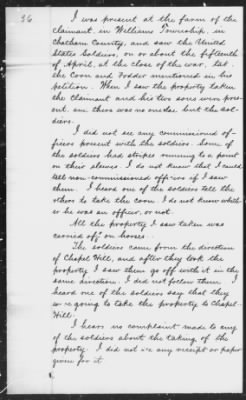 36
I was present at the farm of the
claimant, in Williams Township, in
Chatham County, and saw the United
States Soldiers, on or about the fifteenth
of April, at the close of the war, take
the Corn and Fodder mentioned in his
petition. When I saw the property taken
the claimant and his two sons were pres-
ent. There was no one else but the sol-
diers.
I did not see any commissioned of-
ficers present with the soldiers. Some of
the soldiers had stripes running to a point
on their sleeves. I do not know that I could
tell non-commissioned officers if I saw
them. I heard one of the soldiers tell the
others to take the corn. I do not know wheth-
er he was an officer, or not.
All the property I saw taken was
carried off on horses.
The soldiers came from the direction
of Chapel Hill, and after they took the
property I saw them go off with it in the
same direction. I did not follow them. I
heard one of the soldiers say that they
were going to take the property to Chapel-
Hill.
I heard no complaint made to any
of the soldiers about the taking of the
property. I did not see any receipt or paper
given for it